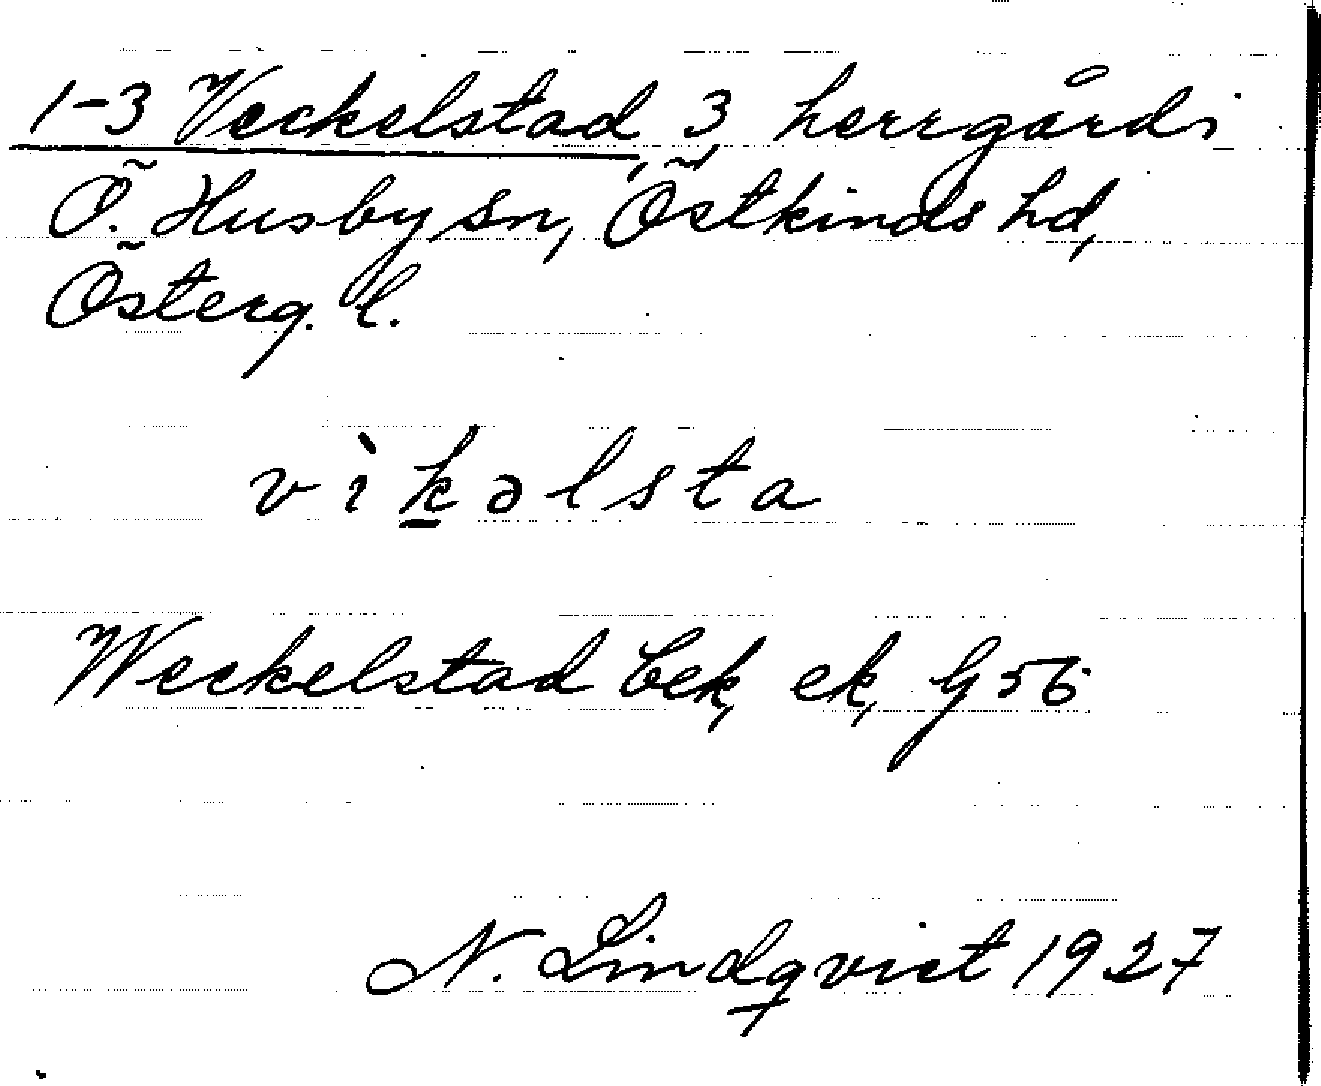 1-3 Veckelstad, 3 herrgård,
Ö. Husby sn, Östkinds hd,
Österg. l.
vìkəlsta
Weckelstad bek, ek, G 56
N. Lindqvist 1927